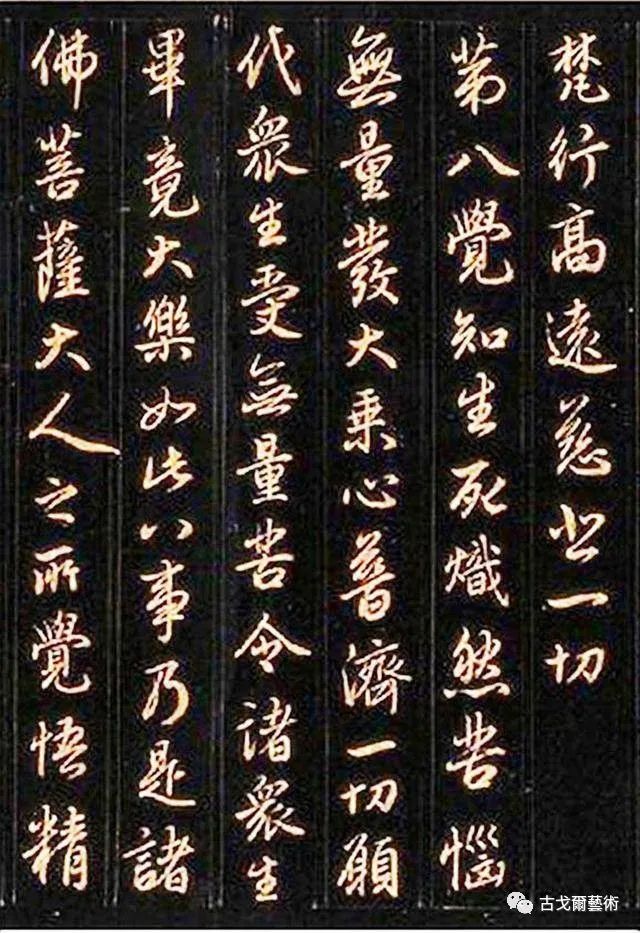 梵行高遠慈悲一切
第八覺知生死熾然苦惱
無量發大乘心普濟一切願
代眾生受無量苦令諸眾生
畢竟大樂如此八事乃是諸
佛菩薩大人之所覺悟精
古戈爾藝術